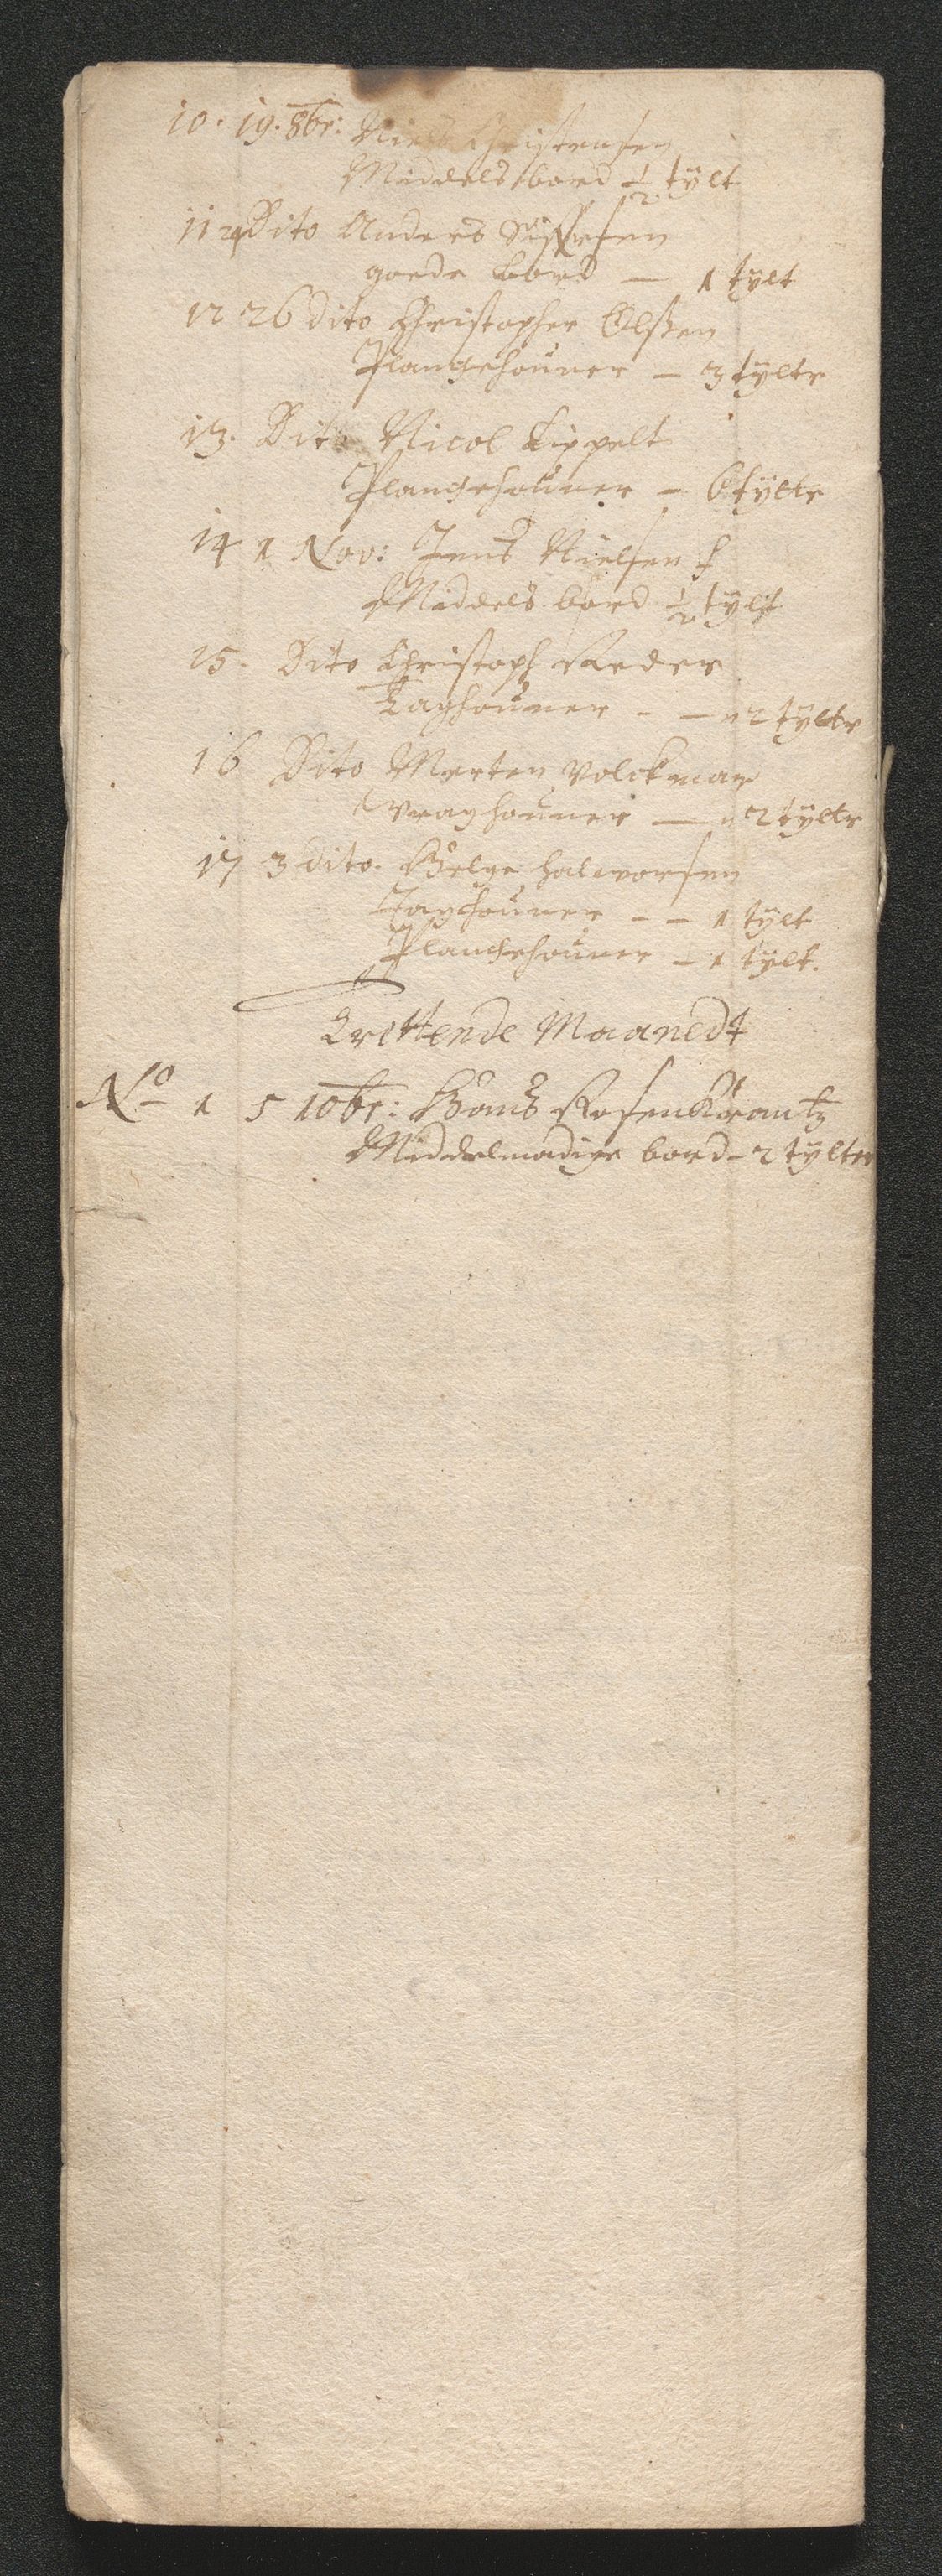 10. 19. 8br: Niels Christensen
Middels bord ½ tylt
11 Dito Anders
goede bord — 1 tylt
12 26 dito Christopher Olßen
Planckhouner — 3 tylter
13. Dito Nicol Lippelt
Planckhouner — 6 tylter
14 1 Nov: Jens Nielsen
Middels bord ½ tylt
15. Dito Christoph Reder
Laghouner - — 2 tylter
16 Dito Merten Volckmar
Vraghouner — 2 tylter
17 3 dito. Helge halvorsen
houner - - 1 tylt
Planckhouner — 1 tylt.
Trettende Maanedt
No 1 5 10br: Hans Rosenkrantz
Middelmadige bord - 2 tylter